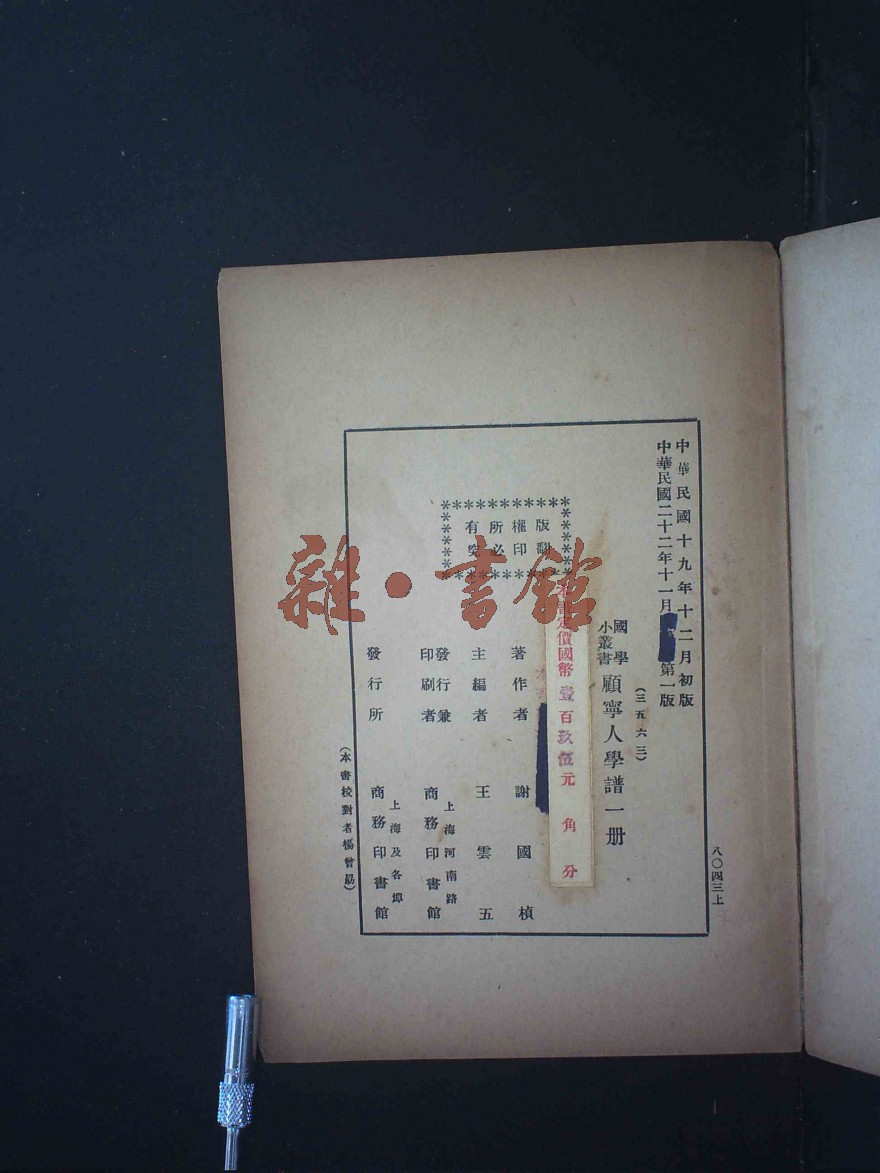 中華民國十九年十二月初版
中華民國二十二年十一月 第一版
(三五六三)
國學
小叢書
顧寧人學譜一册
本書定價國幣壹百玖伍元 角 分
版權所有
翻印必究
著作者 謝國楨
主編者 王雲五
發行兼
印刷者
上海河南路
商務印書館
發行所
上海及各埠
商務印書館
(本書校對者楊曾勗)
八〇四三上
雜·書館